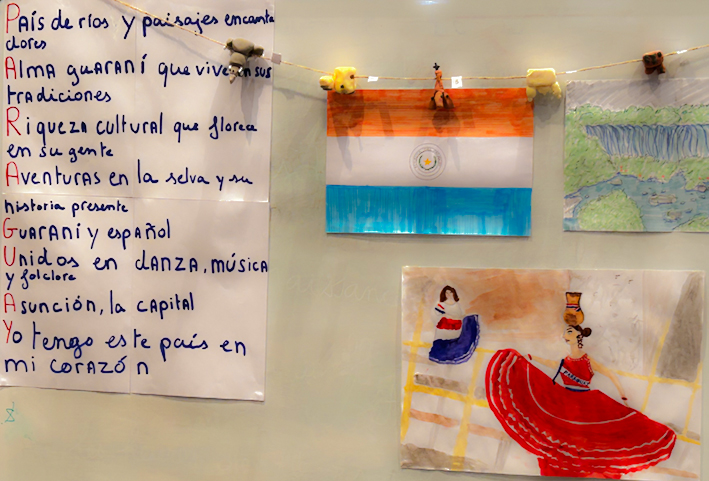 País de ríos y paisajes encanta
dores
Alma guaraní que vive en sus
tradiciones
Riqueza cultural que florea
en su gente
Aventuras en la selva y su
historia presente
Guaraní y español
Unidos en danza, música
y folclore
Asunción, la capital
Yo tengo este país en
mi corazón